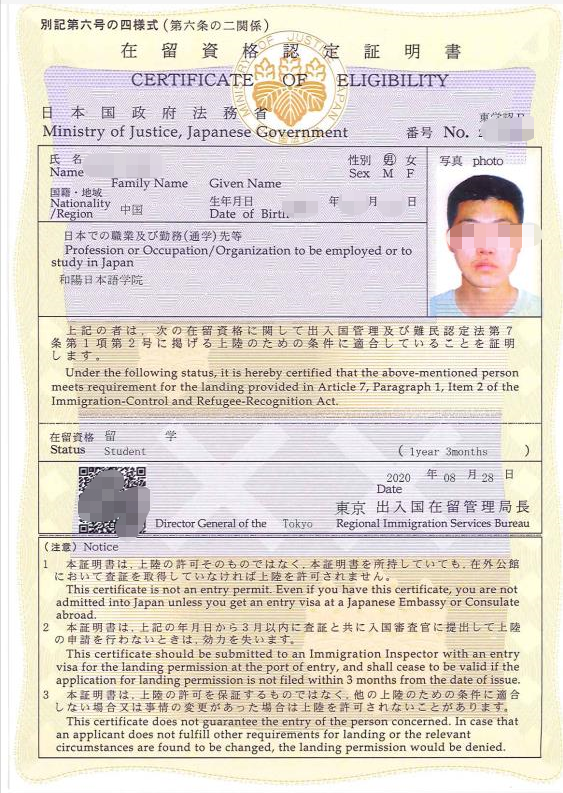 別記第六号の四様式(第六条の二関係)
在留資格認定証明書
CERTIFICATE OF ELIGIBILITY
MINISTRY OF JUSTICE JAPAN
日本国政府法務省
Ministry of Justice, Japanese Government
番号 No.
氏名
Name
Family Name Given Name
性別 男 女
Sex M F
写真 photo
国籍・地域
Nationality
/Region 中国
生年月日 年 月 日
Date of Birth
日本での職業及び勤務(通学)先等
Profession or Occupation/Organization to be employed or to
study in Japan
和陽日本語学院
上記の者は、次の在留資格に関して出入国管理及び難民認定法第7
条第1項第2号に掲げる上陸のための条件に適合していることを証明
します。
Under the following status, it is hereby certified that the above-mentioned person
meets requirement for the landing provided in Article 7, Paragraph 1, Item 2 of the
Immigration-Control and Refugee-Recognition Act.
在留資格 留 学
Status Student ( 1year 3months )
2020 年 08 月 28 日
Date
東京 出入国在留管理局長
Director General of the Tokyo Regional Immigration Services Bureau
(注意) Notice
1 本証明書は、上陸の許可そのものではなく、本証明書を所持していても、在外公館
において査証を取得していなければ上陸を許可されません。
This certificate is not an entry permit. Even if you have this certificate, you are not
admitted into Japan unless you get an entry visa at a Japanese Embassy or Consulate
abroad.
2 本証明書は、上記の年月日から3月以内に査証と共に入国審査官に提出して上陸
の申請を行わないときは、効力を失います。
This certificate should be submitted to an Immigration Inspector with an entry
visa for the landing permission at the port of entry, and shall cease to be valid if the
application for landing permission is not filed within 3 months from the date of issue.
3 本証明書は、上陸の許可を保証するものではなく、他の上陸のための条件に適合
しない場合又は事情の変更があった場合は上陸を許可されないことがあります。
This certificate does not guarantee the entry of the person concerned. In case that
an applicant does not fulfill other requirements for landing or the relevant
circumstances are found to be changed, the landing permission would be denied.